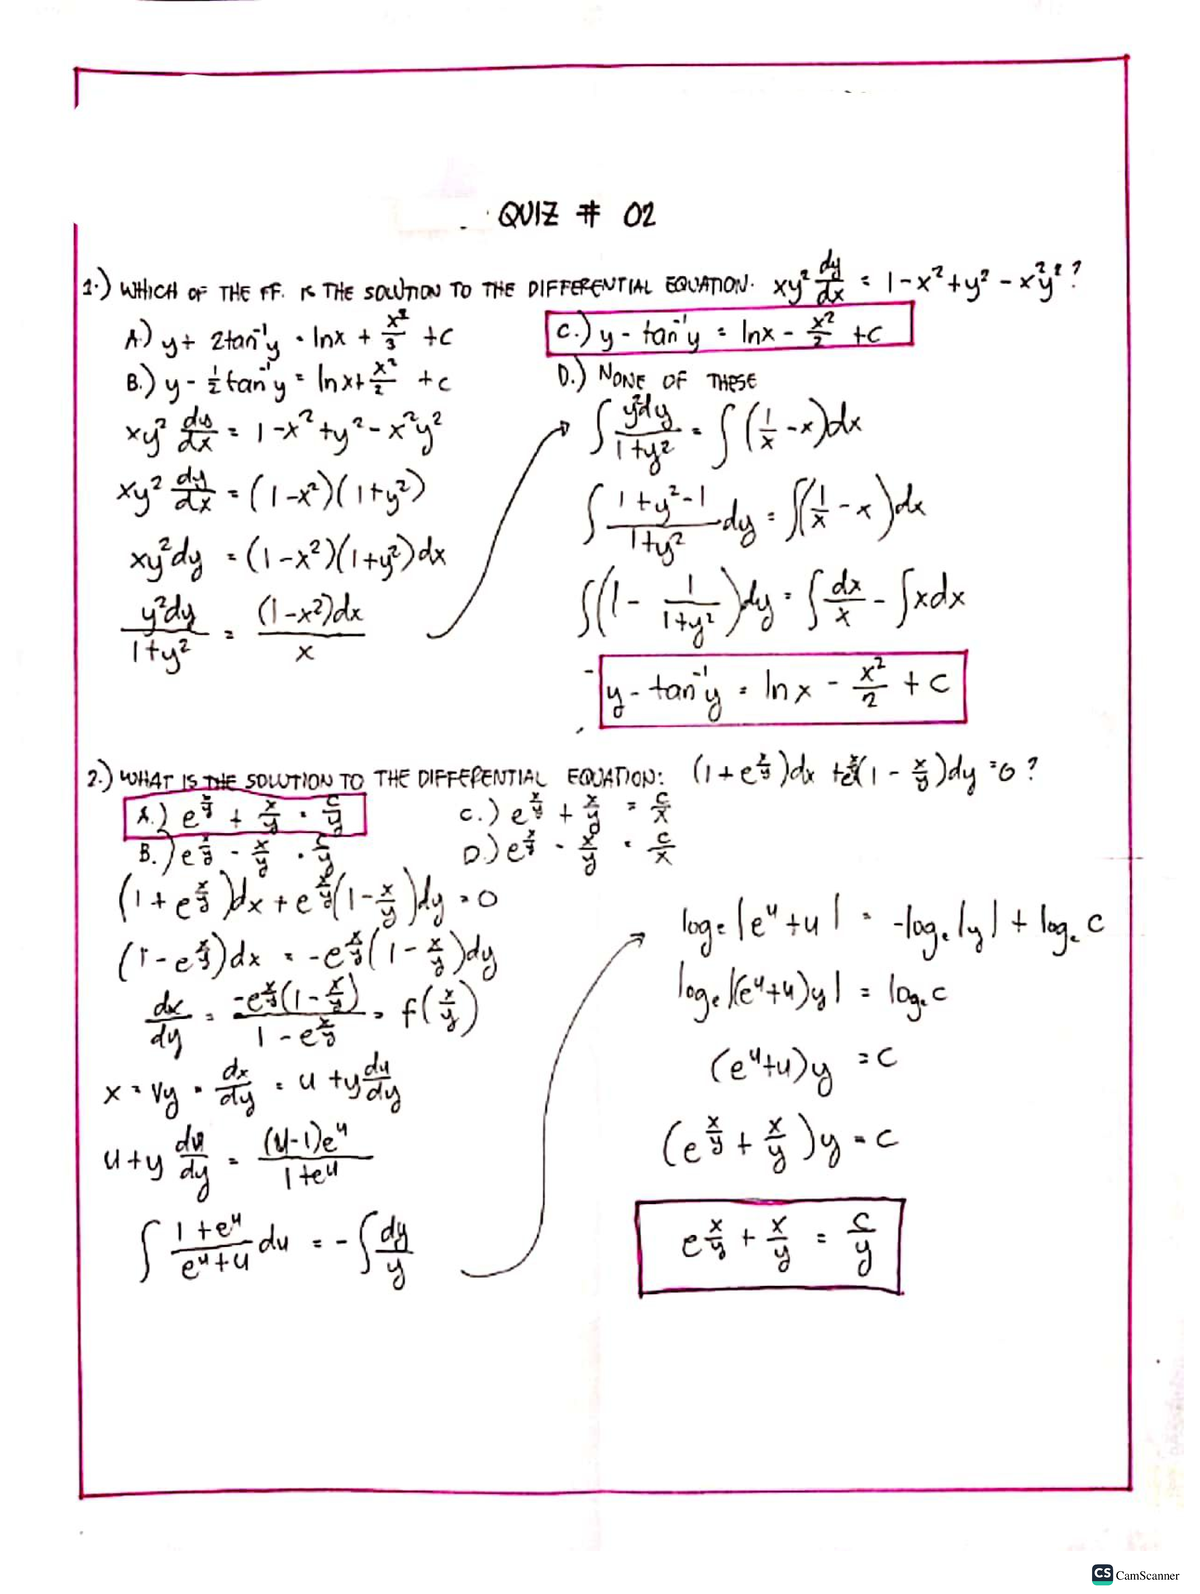 QUIZ # 02
1.) WHICH OF THE FF. IS THE SOLUTION TO THE DIFFERENTIAL EQUATION. xy² dy/dx = 1-x²+y²-x²y² ?
A.) y + 2tan⁻¹y = lnx + x²/3 + C
C.) y - tan⁻¹y = lnx - x²/2 + C
B.) y - 1/2 tan⁻¹y = lnx + x²/2 + C
D.) NONE OF THESE
xy² dy/dx = 1-x²+y²-x²y²
xy² dy/dx = (1-x²)(1+y²)
xy²dy = (1-x²)(1+y²)dx
y²dy/1+y² = (1-x²)dx/x
∫ y²dy/1+y² = ∫(1/x - x)dx
∫ 1+y²-1/1+y² dy = ∫(1/x - x)dx
∫(1 - 1/1+y²)dy = ∫dx/x - ∫xdx
y - tan⁻¹y = lnx - x²/2 + C
2.) WHAT IS THE SOLUTION TO THE DIFFERENTIAL EQUATION: (1+e^x/y)dx + e^x/y(1 - x/y)dy = 0 ?
A.) e^x/y + x/y = C/y
C.) e^x/y + x/y = C/x
B.) e^x/y - x/y = C/y
D.) e^x/y - x/y = C/x
(1+e^x/y)dx + e^x/y(1-x/y)dy = 0
(1-e^x/y)dx = -e^x/y(1-x/y)dy
dx/dy = -e^x/y(1-x/y)/1-e^x/y = f(x/y)
x = Vy = dx/dy = u + y du/dy
u + y du/dy = (u-1)e^u/1+e^u
∫ 1+e^u/e^u+u du = -∫dy/y
logₑ|e^u+u| = -logₑ|y| + logₑ C
logₑ|(e^u+u)y| = logₑ C
(e^u+u)y = C
(e^x/y + x/y)y = C
e^x/y + x/y = C/y
CS CamScanner